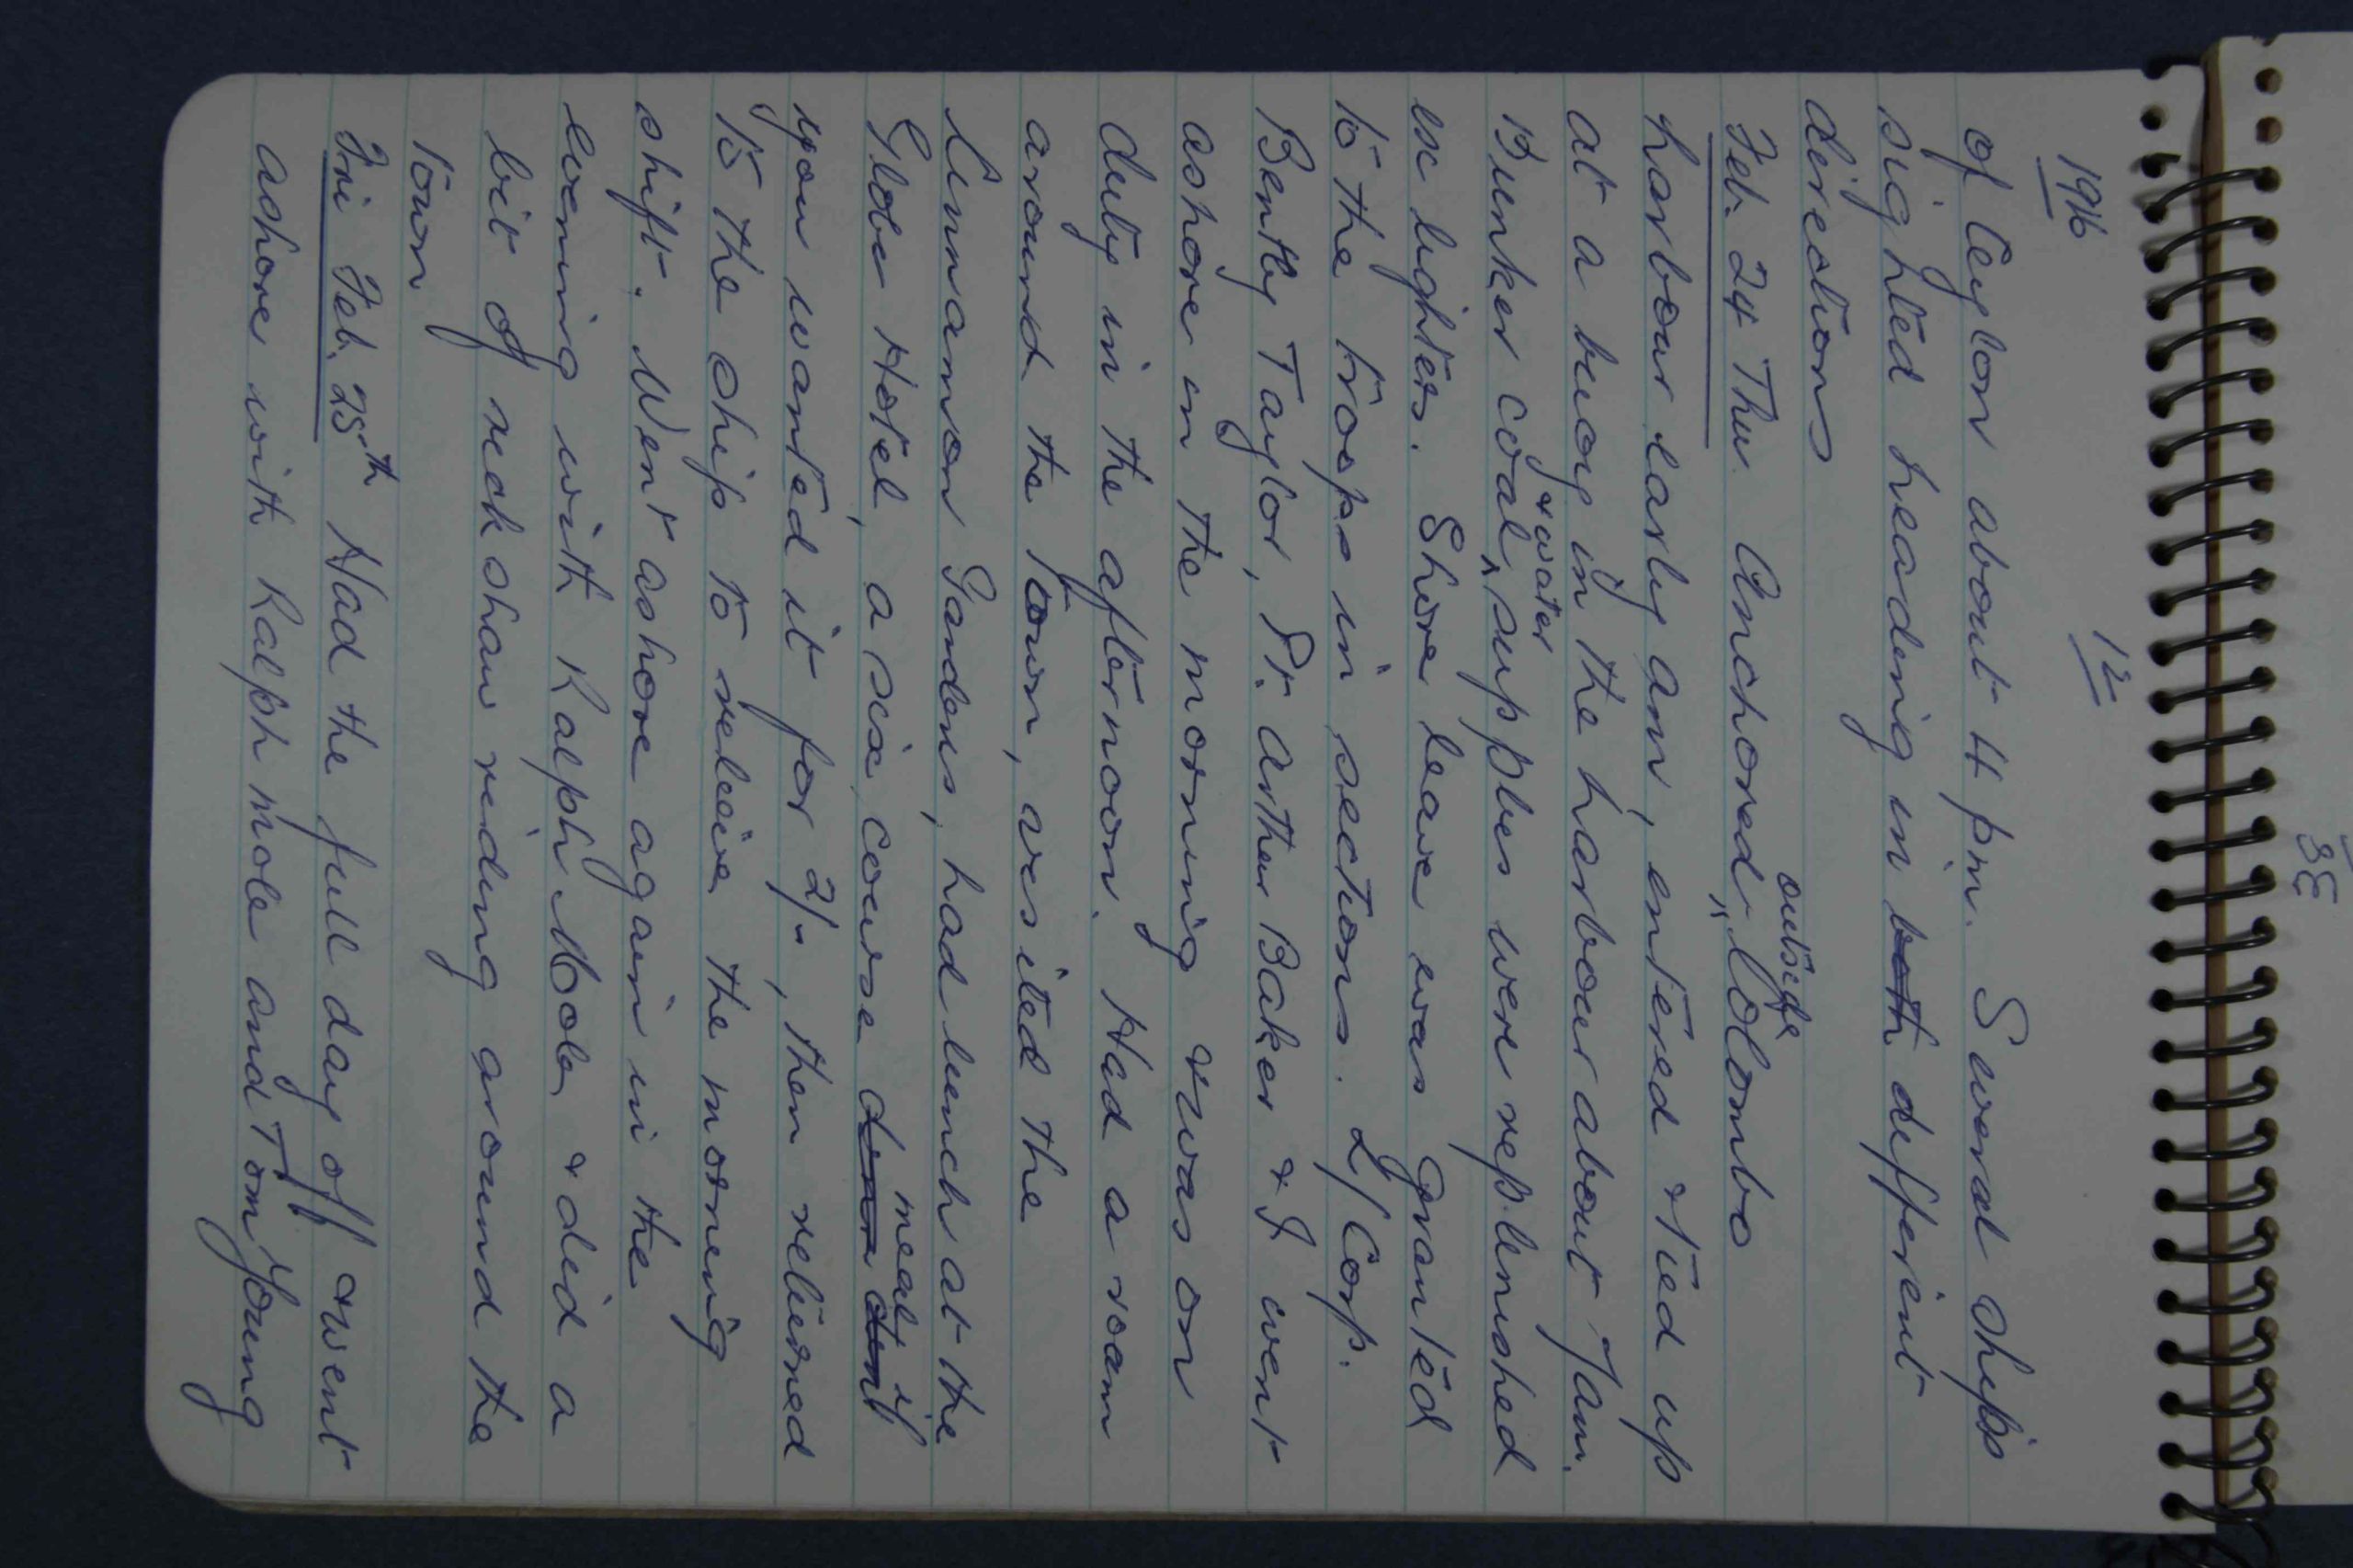 1916
12
of Ceylon about 4 pm. Several ships
sighted heading in both different
directions
Feb. 24 Thu. Anchored outside Colombo
harbour early am, entered & tied up
at a buoy in the harbour about 7am.
Bunker coal & water supplies were replenished
ex lighters. Shore leave was granted
to the troops in sections. L/Corp.
Bently Taylor, Pt. Arthur Baker & I went
ashore in the morning & was on
duty in the afternoon. Had a roam
around the town, visited the
Cinnamon Gardens, had lunch at the
Globe Hotel, a six course meal if
you wanted it for 2/-, then returned
to the ship to relieve the morning
shift. Went ashore again in the
evening with Ralph Mole & did a
bit of rickshaw riding around the
town
Fri Feb. 25th Had the full day off & went
ashore with Ralph Mole and Tom Young